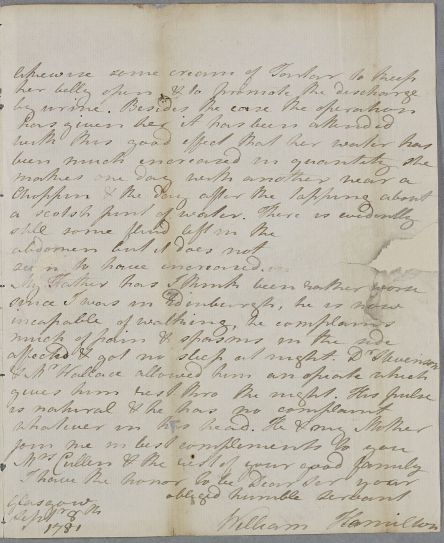 likewise some cream of Tartar to keep
her belly open & to promote the discharge
by urine. Besides the ease the operation
has given her it has been attended
with this good effect that her water has
been much encreased in quantity she
makes one day with another near a
Choppin & the day after the tapping about
a scotsh pint of water. There is evidently
still some fluid left in the
abdomen but it does not
to have increased.
My Father has I think been rather worse
since I was in Edenburgh, he is now
incapable of walking, he complains
much of pain & spasms in the side
affected & got no sleep at night. Dr Stevenson
& Mr Wallace allowed him an opeate which
gives him rest thro the night. His pulse
is natural & he has no complaint
whatever in his head. He & my Mother
join me in best complements to you
Mrs Cullen & the rest of your good family
I have the honor to be Dear Sir your
obliged humble servant
William Hamilton
Glasgow
Septr 8th
1781